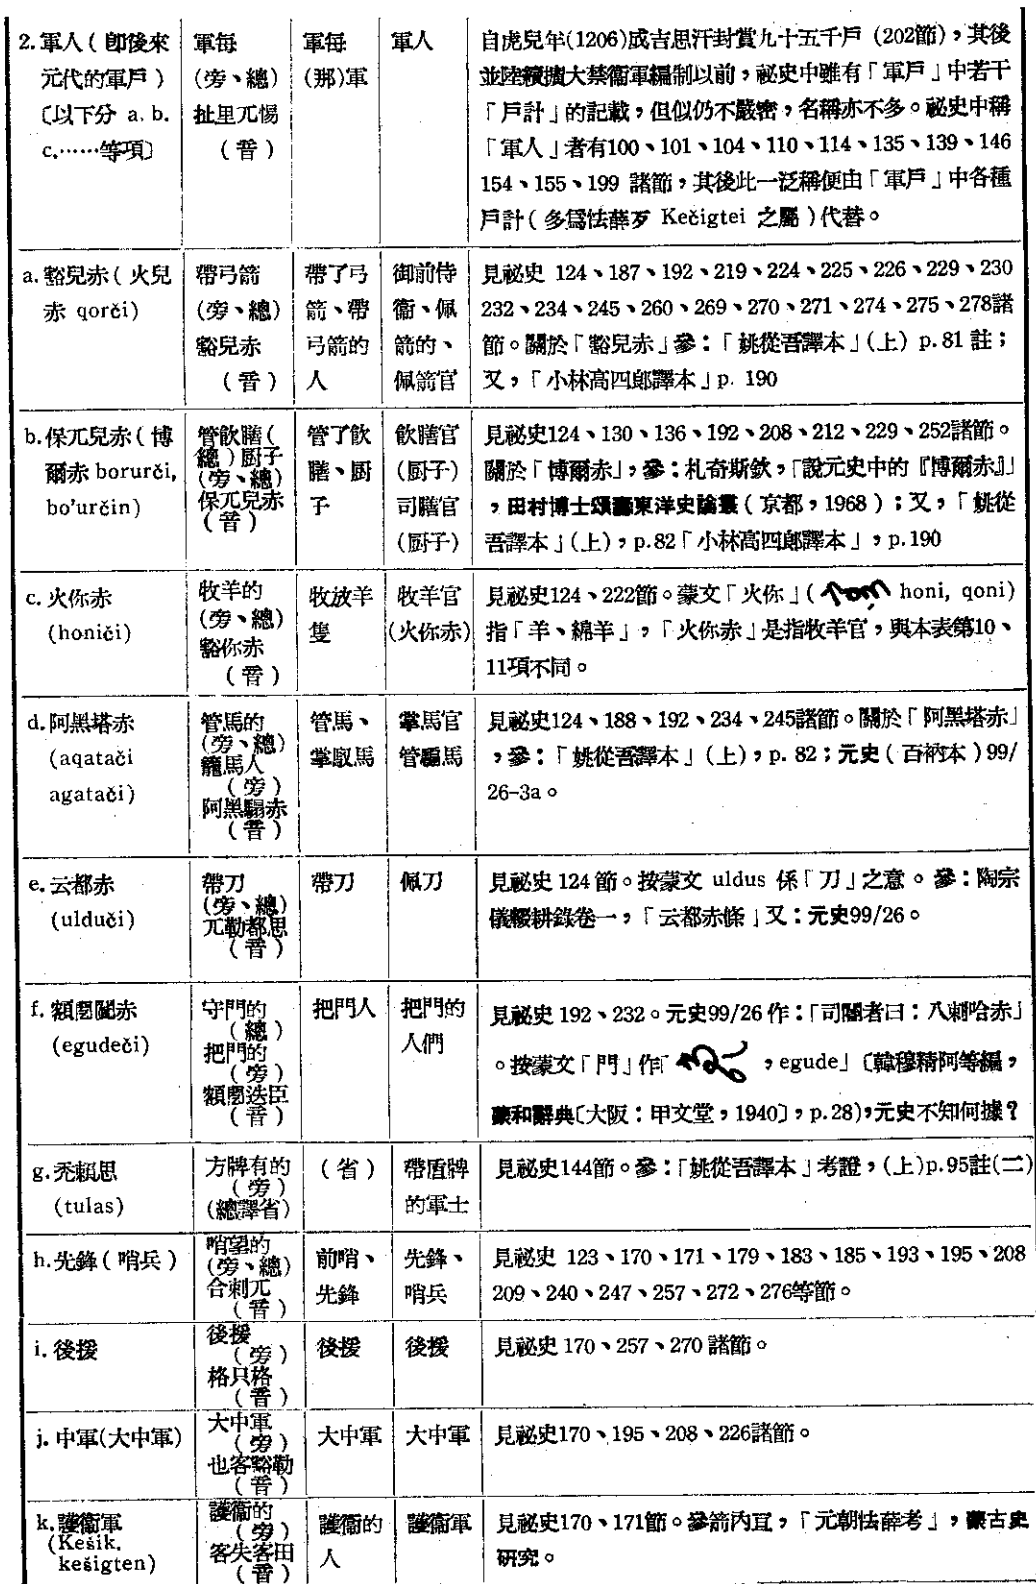 2.軍人(卽後來
元代的軍戶)
〔以下分 a. b.
c.……等項〕
軍每
(旁、總)
扯里兀惕
(音)
軍每
(那)軍
軍人
自虎兒年(1206)成吉思汗封賞九十五千戶 (202節),其後
並陸續擴大禁衞軍編制以前,祕史中雖有「軍戶」中若干
「戶計」的記載,但似仍不嚴密,名稱亦不多。祕史中稱
「軍人」者有100、101、104、110、114、135、139、146
154、155、199 諸節,其後此一泛稱便由「軍戶」中各種
戶計(多爲怯薛歹 Kečigtei 之屬)代替。
a.豁兒赤(火兒
赤 qorči)
帶弓箭
(旁、總)
豁兒赤
(音)
帶了弓
箭、帶
弓箭的
人
御前侍
衞、佩
箭的、
佩箭官
見祕史 124、187、192、219、224、225、226、229、230
232、234、245、260、269、270、271、274、275、278諸
節。關於「豁兒赤」參:「姚從吾譯本」(上) p.81 註;
又,「小林高四郎譯本」p. 190
b.保兀兒赤(博
爾赤 borurči,
bo'určin)
管飲膳(
總)廚子
(旁、總)
保兀兒赤
(音)
管了飲
膳、廚
子
飲膳官
(廚子)
司膳官
(廚子)
見祕史124、130、136、192、208、212、229、252諸節。
關於「博爾赤」,參:札奇斯欽,「說元史中的『博爾赤』」
,田村博士頌壽東洋史論叢(京都,1968);又,「姚從
吾譯本」(上),p.82「小林高四郎譯本」,p.190
c. 火你赤
(honiči)
牧羊的
(旁、總)
豁你赤
(音)
牧放羊
隻
牧羊官
(火你赤)
見祕史124、222節。蒙文「火你」( honi, qoni)
指「羊、綿羊」,「火你赤」是指牧羊官,與本表第10、
11項不同。
d.阿黑塔赤
(aqatači
agatači)
管馬的
(旁、總)
籠馬人
(旁)
阿黑駶赤
(音)
管馬、
掌馭馬
掌馬官
管騸馬
見祕史124、188、192、234、245諸節。關於「阿黑塔赤」
,參:「姚從吾譯本」(上),p. 82;元史(百衲本)99/
26-3a。
e. 云都赤
(ulduči)
帶刀
(旁、總)
兀勒都思
(音)
帶刀
佩刀
見祕史 124 節。按蒙文 uldus 係「刀」之意。參:陶宗
儀輟耕錄卷一,「云都赤條」又:元史99/26。
f. 額闍闔赤
(egudeči)
守門的
(總)
把門的
(旁)
額闍迭臣
(音)
把門人
把門的
人們
見祕史 192、232。元史99/26 作:「司閽者曰:八剌哈赤」
。按蒙文「門」作「 ,egude」〔韓穆精阿等編,
蒙和辭典〔大阪:甲文堂,1940〕,p.28),元史不知何據?
g.禿賴思
(tulas)
方牌有的
(旁)
(總譯省)
(省)
帶盾牌
的軍士
見祕史144節。參:「姚從吾譯本」考證,(上)p.95註(二)
h.先鋒(哨兵)
哨望的
(旁、總)
合剌兀
(音)
前哨、
先鋒
先鋒、
哨兵
見祕史 123、170、171、179、183、185、193、195、208
209、240、247、257、272、276等節。
i. 後援
後援
(旁)
格只格
(音)
後援
後援
見祕史 170、257、270 諸節。
j. 中軍(大中軍)
大中軍
(旁)
也客豁勒
(音)
大中軍
大中軍
見祕史170、195、208、226諸節。
k.護衞軍
(Kešik,
kešigten)
護衞的
(旁)
客失客田
(音)
護衞的
人
護衞軍
見祕史170、171節。參箭內亘,「元朝怯薛考」,蒙古史
研究。